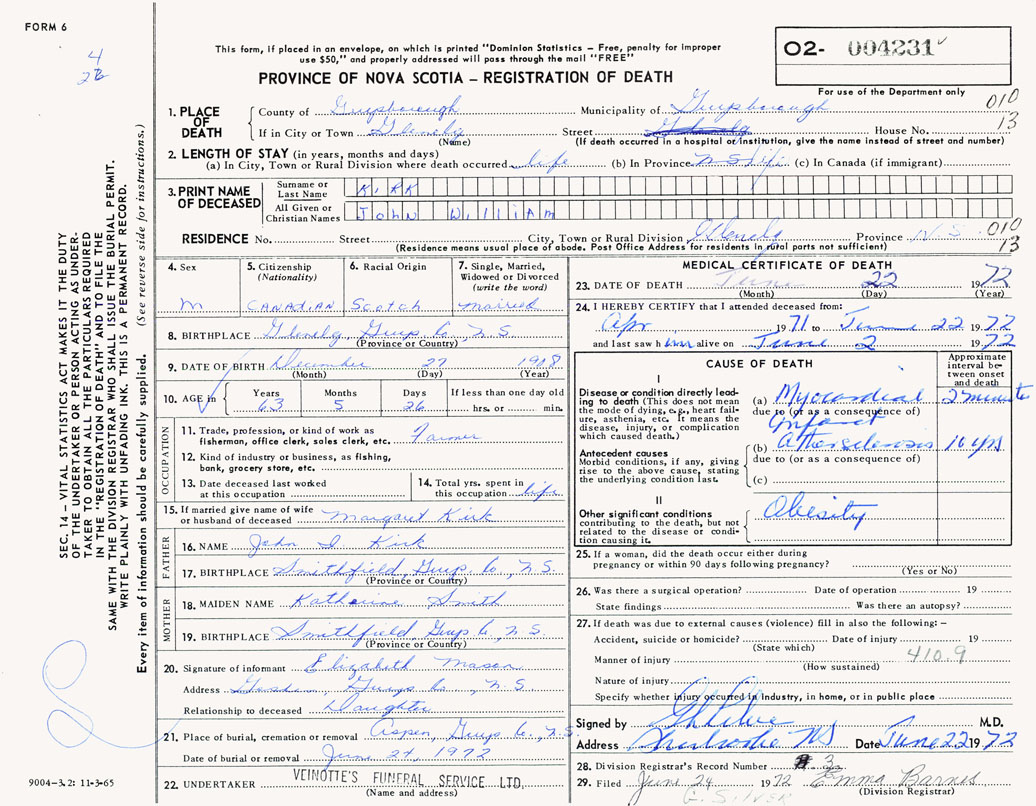 FORM 6
4
This form, if placed in an envelope, on which is printed "Dominion Statistics – Free, penalty for improper
use $50," and properly addressed will pass through the mail "FREE"
O2- 004231
PROVINCE OF NOVA SCOTIA – REGISTRATION OF DEATH
For use of the Department only
010
13
1. PLACE OF DEATH
County of Guysborough Municipality of Guysborough
If in City or Town Glenelg Street House No.
(Name) (If death occurred in a hospital or institution, give the name instead of street and number)
2. LENGTH OF STAY (in years, months and days)
(a) In City, Town or Rural Division where death occurred life (b) In Province NS life (c) In Canada (if immigrant)
3. PRINT NAME OF DECEASED
Surname or Last Name KIRK
All Given or Christian Names JOHN WILLIAM
RESIDENCE No. Street City, Town or Rural Division Glenelg Province N.S. 010
13
(Residence means usual place of abode. Post Office Address for residents in rural parts not sufficient)
4. Sex
M
5. Citizenship
(Nationality)
CANADIAN
6. Racial Origin
Scotch
7. Single, Married,
Widowed or Divorced
(write the word)
Married
8. BIRTHPLACE Glenelg, Guys. Co., N.S.
(Province or Country)
9. DATE OF BIRTH December 27 1908
(Month) (Day) (Year)
10. AGE in
Years Months Days If less than one day old
63 5 26 hrs. or min.
OCCUPATION
11. Trade, profession, or kind of work as
fisherman, office clerk, sales clerk, etc. Farmer
12. Kind of industry or business, as fishing,
bank, grocery store, etc.
13. Date deceased last worked
at this occupation
14. Total yrs. spent in
this occupation life
15. If married give name of wife
or husband of deceased Margaret Kirk
FATHER
16. NAME John D. Kirk
17. BIRTHPLACE Smithfield, Guys. Co., N.S.
(Province or Country)
MOTHER
18. MAIDEN NAME Katherine Smith
19. BIRTHPLACE Smithfield, Guys. Co., N.S.
(Province or Country)
20. Signature of informant Elizabeth Mason
Address Guys Co., N.S.
Relationship to deceased Daughter
21. Place of burial, cremation or removal Aspen, Guys. Co., N.S.
Date of burial or removal June 24, 1972
22. UNDERTAKER VEINOTTE'S FUNERAL SERVICE LTD.
(Name and address)
MEDICAL CERTIFICATE OF DEATH
23. DATE OF DEATH June 22 1972
(Month) (Day) (Year)
24. I HEREBY CERTIFY that I attended deceased from:
Apr 1971 to June 22 1972
and last saw him alive on June 2 1972
CAUSE OF DEATH
Approximate
interval be-
tween onset
and death
I
Disease or condition directly lead-
ing to death (This does not mean
the mode of dying, e.g., heart fail-
ure, asthenia, etc. It means the
disease, injury, or complication
which caused death.)
(a) Myocardial 2 minutes
due to (or as a consequence of)
infarct
Antecedent causes
Morbid conditions, if any, giving
rise to the above cause, stating
the underlying condition last.
(b) Atherosclerosis 10 yrs
due to (or as a consequence of)
(c)
II
Other significant conditions
contributing to the death, but not
related to the disease or condi-
tion causing it.
Obesity
25. If a woman, did the death occur either during
pregnancy or within 90 days following pregnancy?
(Yes or No)
26. Was there a surgical operation? Date of operation 19
State findings Was there an autopsy?
27. If death was due to external causes (violence) fill in also the following: –
Accident, suicide or homicide? Date of injury 19
(State which)
Manner of injury 410.9
(How sustained)
Nature of injury
Specify whether injury occurred in industry, in home, or in public place
Signed by M.D.
Address Sherbrooke NS Date June 22 1972
28. Division Registrar's Record Number 3
29. Filed June 24 1972 Emma Barnes
(Division Registrar)
G. SILVER
SEC. 14 – VITAL STATISTICS ACT MAKES IT THE DUTY
OF THE UNDERTAKER OR PERSON ACTING AS UNDER-
TAKER TO OBTAIN ALL THE PARTICULARS REQUIRED
IN THE "REGISTRATION OF DEATH" AND TO FILE THE
SAME WITH THE DIVISION REGISTRAR WHO SHALL ISSUE THE BURIAL PERMIT.
WRITE PLAINLY WITH UNFADING INK. THIS IS A PERMANENT RECORD.
Every item of information should be carefully supplied. (See reverse side for instructions.)
9004-3.2: 11-3-65